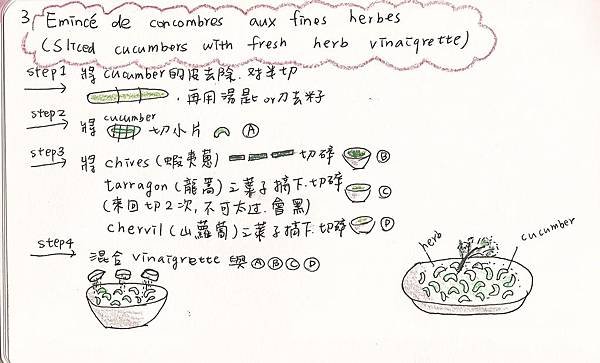 3. Emincé de concombres aux fines herbes
(Sliced cucumbers with fresh herb vinaigrette)
step1 將cucumber的皮去除.對半切
，再用湯匙or刀去籽
step2 將cucumber切小片 Ⓐ
step3 將chives(蝦夷蔥) 切碎 Ⓑ
tarragon(龍蒿)之葉子摘下.切碎 Ⓒ
(來回切2次,不可太过.會黑)
chervil(山蘿蔔)之葉子摘下.切碎 Ⓓ
step4 混合vinaigrette與ⒶⒷⒸⒹ
herb
cucumber